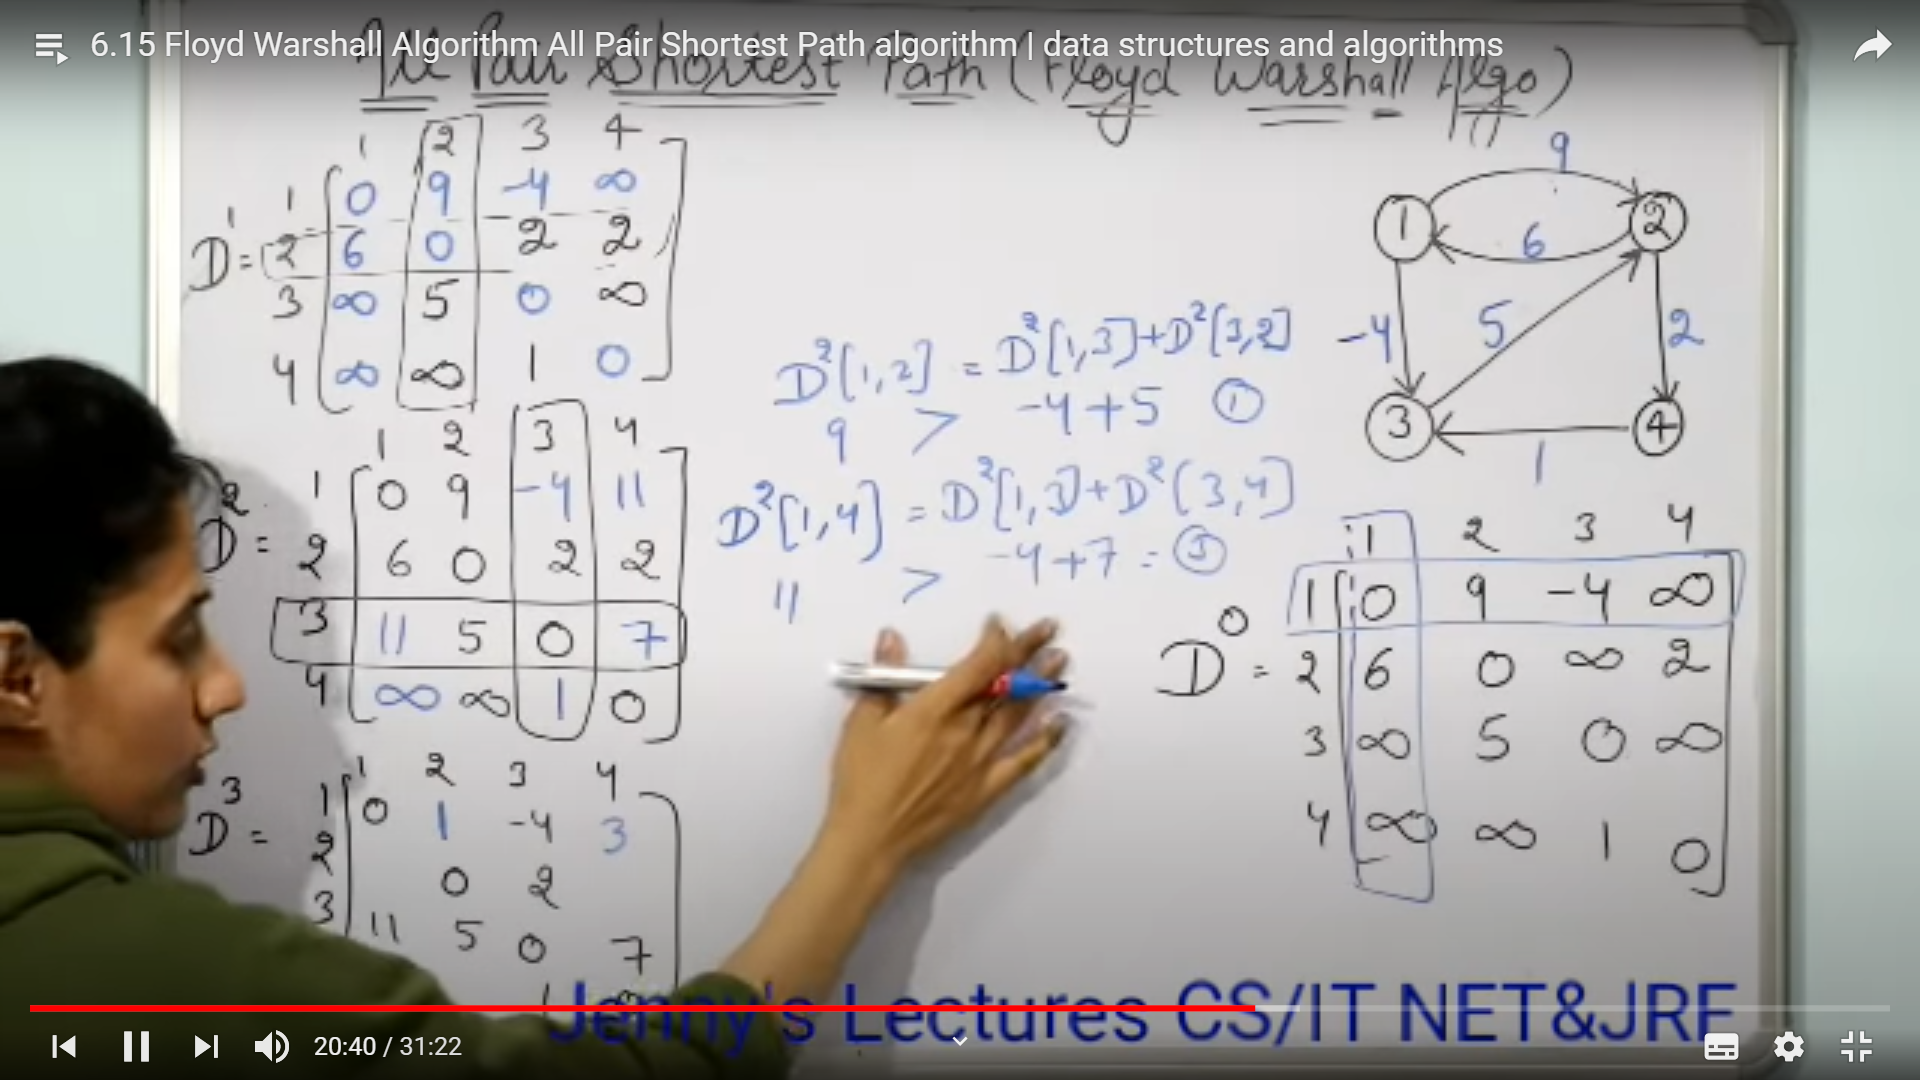 6.15 Floyd Warshall Algorithm All Pair Shortest Path algorithm | data structures and algorithms
All Pair Shortest Path (Floyd Warshall Algo)
1 2 3 4
D¹ =
1 0 9 -4 ∞
2 6 0 2 2
3 ∞ 5 0 ∞
4 ∞ ∞ 1 0
1 2 3 4
D² =
1 0 9 -4 11
2 6 0 2 2
3 11 5 0 7
4 ∞ ∞ 1 0
1 2 3 4
D³ =
1 0 1 -4 3
2 0 2
3 11 5 0 7
1
D²[1,2] = D²[1,3]+D²[3,2]
9 > -4+5 1
D²[1,4] = D²[1,3]+D²[3,4]
-4+7 = 3
11 >
9
1 2
6
-4 5 2
3 4
1
1 2 3 4
D⁰ =
1 0 9 -4 ∞
2 6 0 ∞ 2
3 ∞ 5 0 ∞
4 ∞ ∞ 1 0
Jenny's Lectures CS/IT NET&JRF
20:40 / 31:22